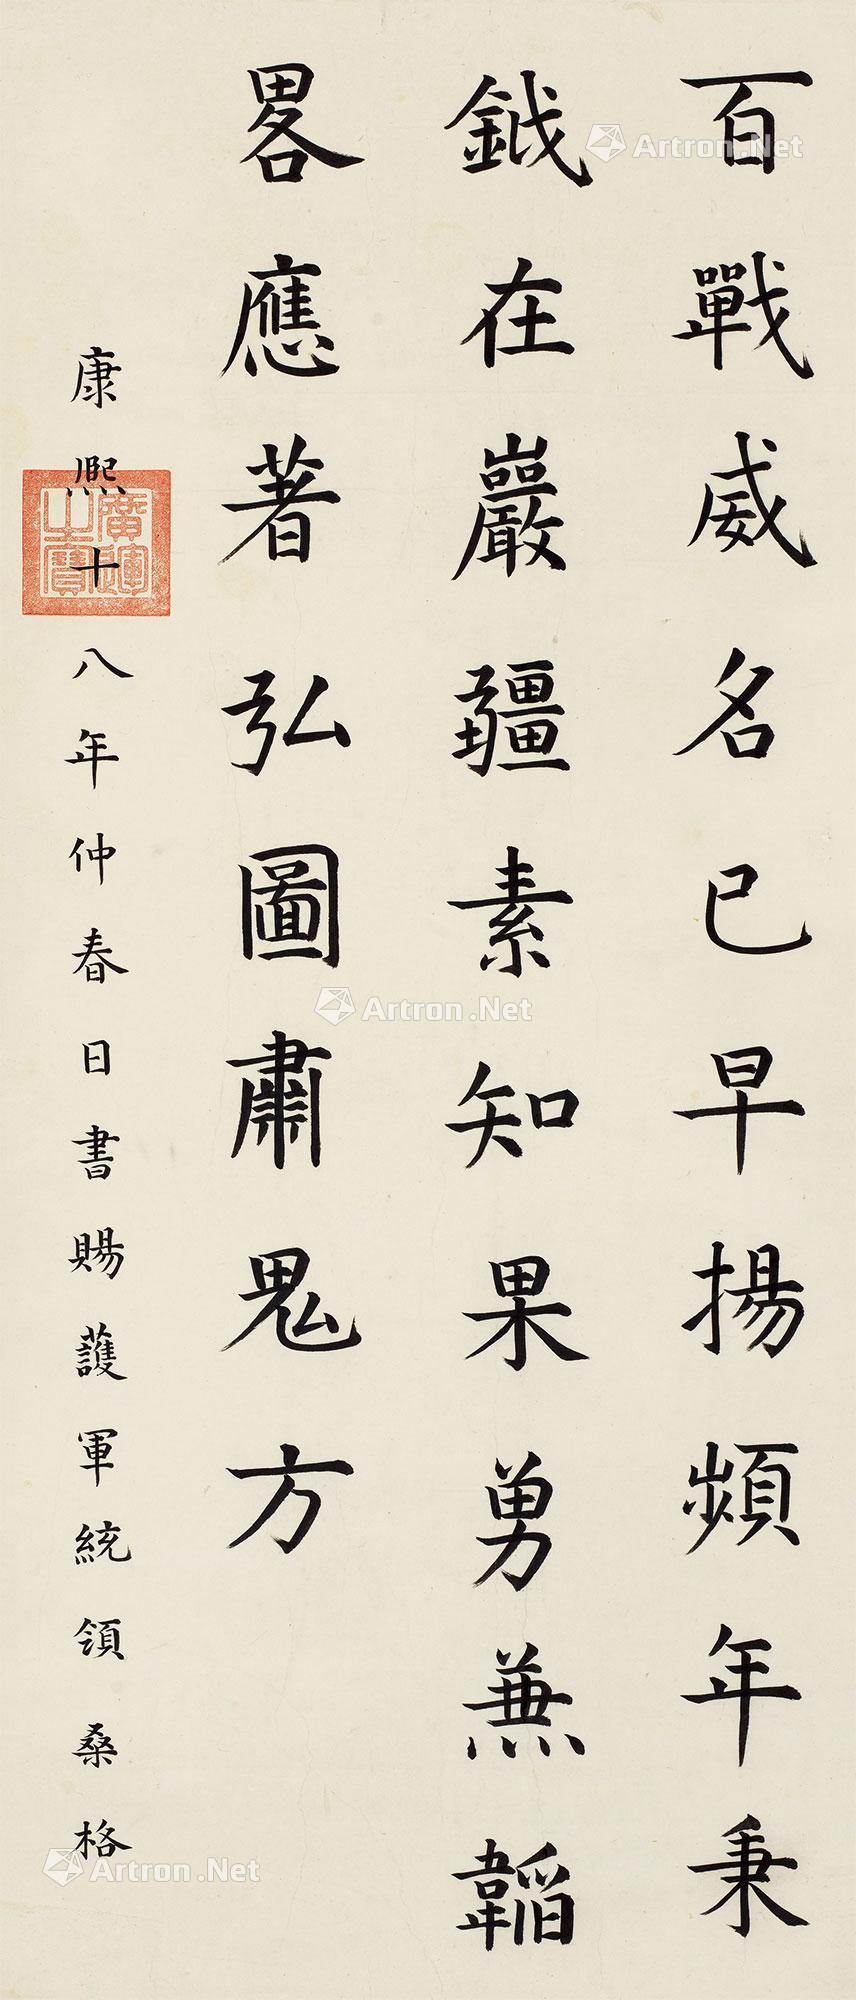 百戰威名已早揚頻年秉
鉞在巖疆素知果勇兼韜
畧應著弘圖肅鬼方
康熙十八年仲春日書賜護軍統領桑格
廣運之寶
Artron.Net
Artron.Net
Artron.Net